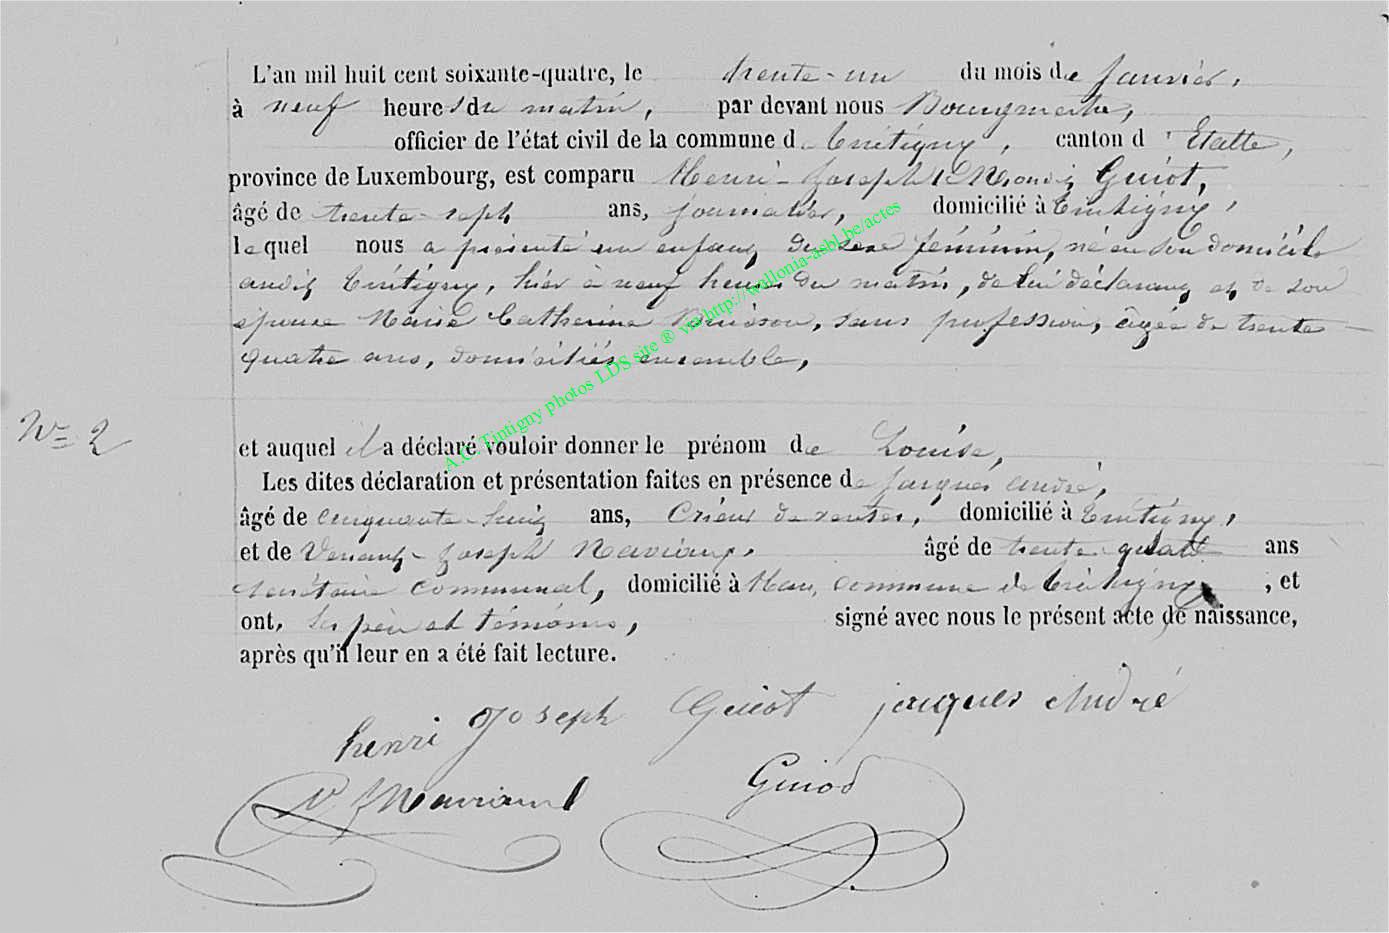 L'an mil huit cent soixante-quatre, le trente-un du mois de Janvier,
à neuf heures du matin, par devant nous Bourgmestre,
officier de l'état civil de la commune de Tintigny, canton d'Etalle,
province de Luxembourg, est comparu Henri-Joseph Guiot,
âgé de trente-sept ans, journalier, domicilié à Tintigny,
lequel nous a présenté un enfant du sexe féminin, né en son domicile
audit Tintigny, hier à neuf heures du matin, de lui déclarant et de son
épouse Marie Catherine sans profession, âgée de trente-
quatre ans, domiciliés ensemble,
N° 2
et auquel il a déclaré vouloir donner le prénom de Louise,
Les dites déclaration et présentation faites en présence de Jacques André,
âgé de cinquante-huit ans, Crieur de ventes, domicilié à Tintigny,
et de Venant-Joseph âgé de trente-quatre ans
secrétaire communal, domicilié à Han, commune de Tintigny, et
ont, les père et témoins, signé avec nous le présent acte de naissance,
après qu'il leur en a été fait lecture.
henri joseph Guiot jacques André
Guiod
A.C. Tintigny photos LDS site ® via http://wallonia-asbl.be/actes